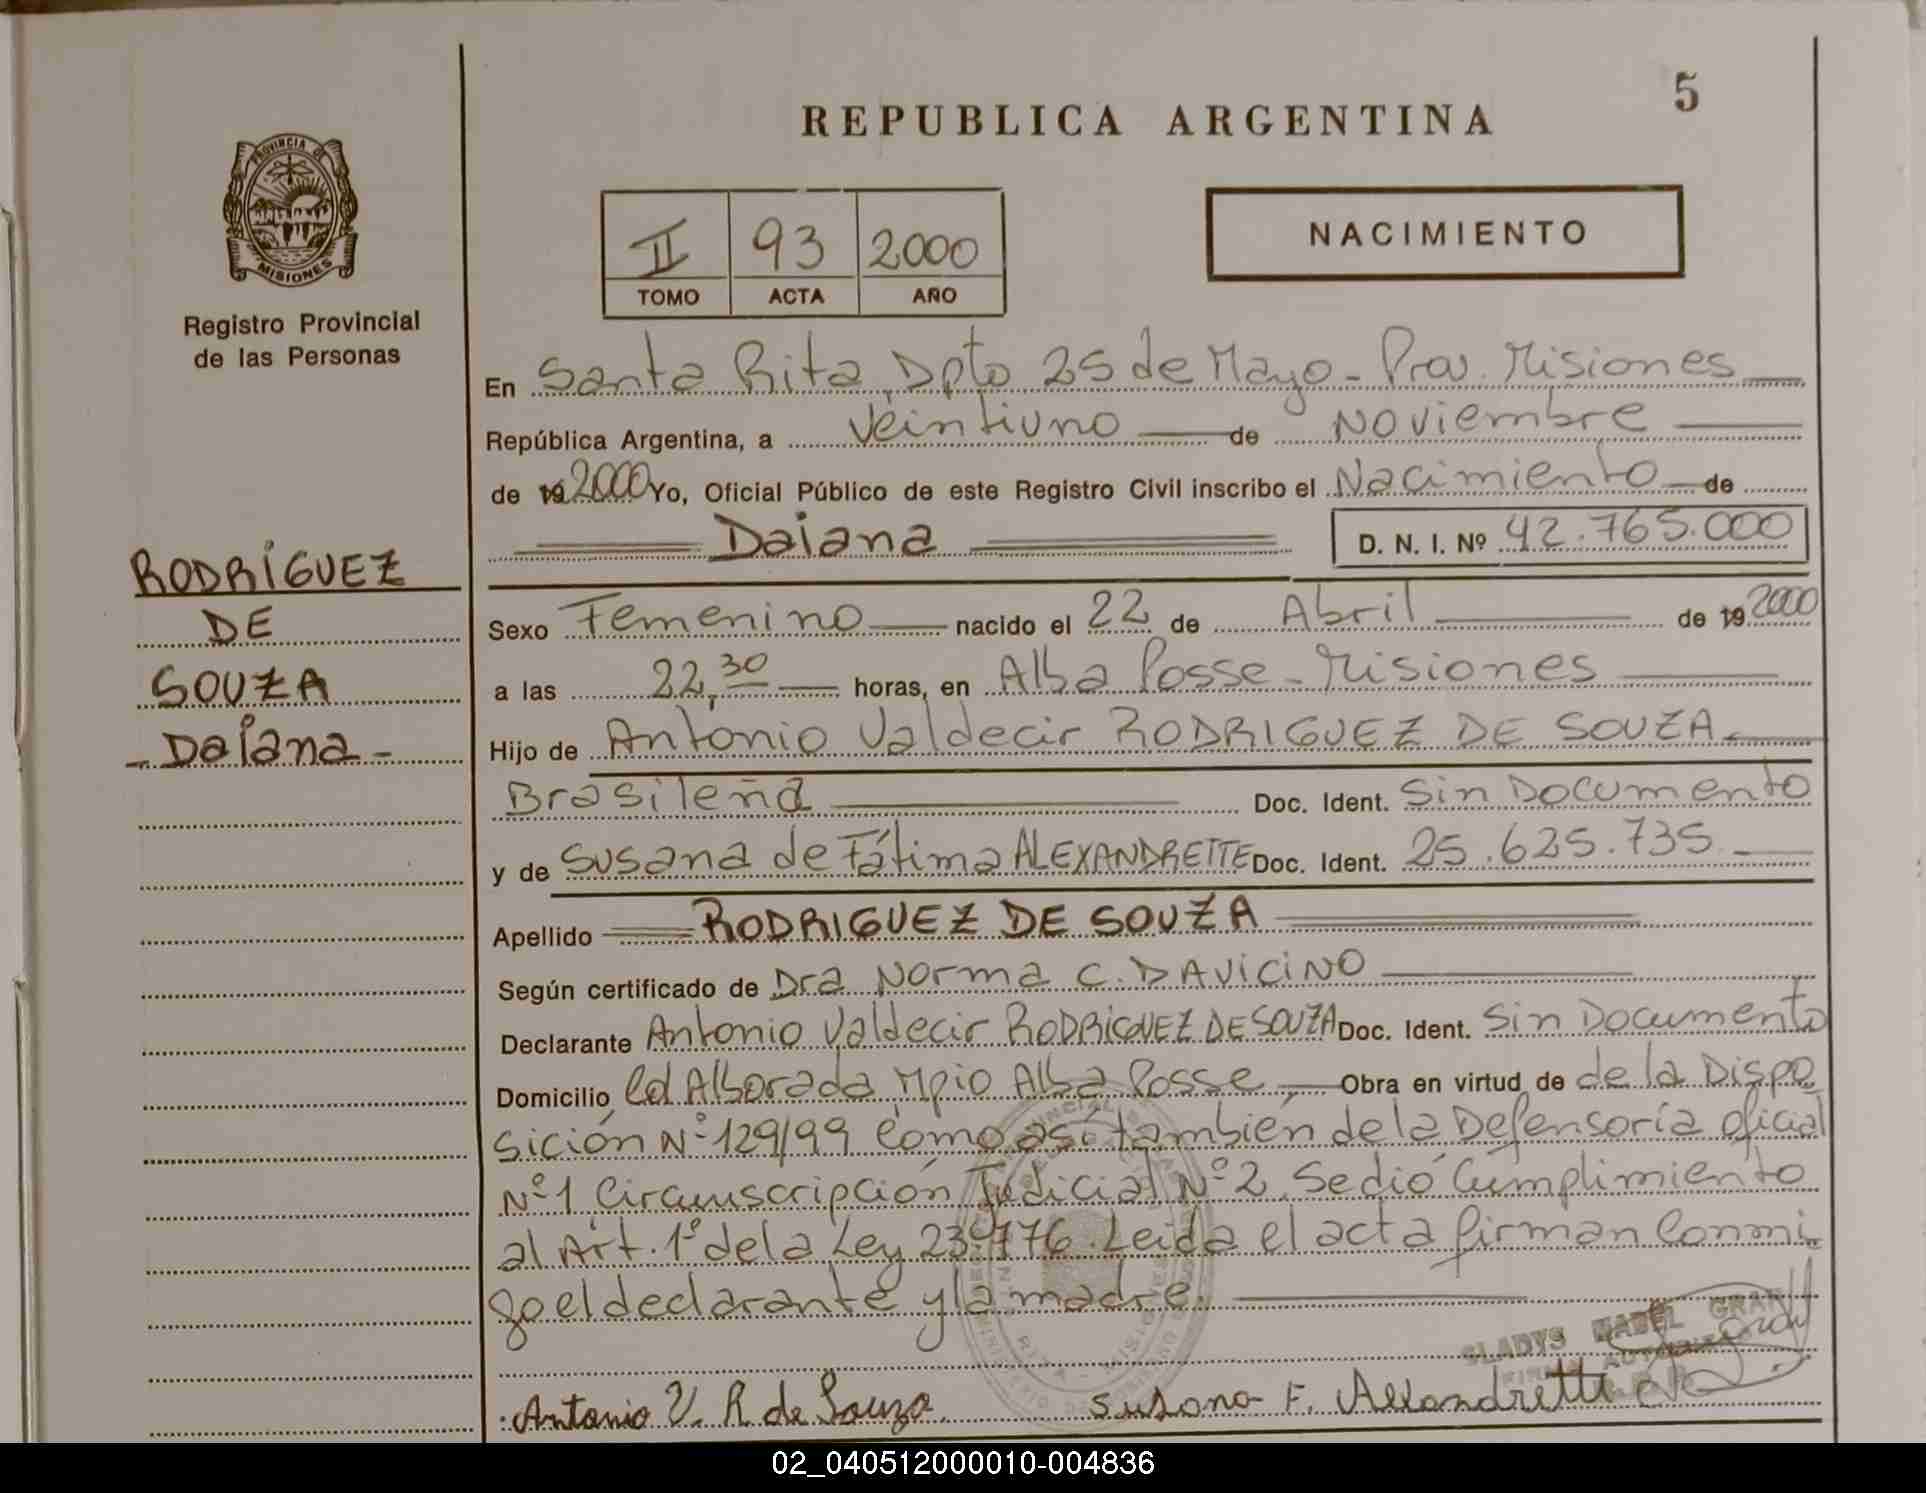 5
REPUBLICA ARGENTINA
PROVINCIA DE
MISIONES
Registro Provincial
de las Personas
II 93 2000
TOMO ACTA AÑO
NACIMIENTO
RODRÍGUEZ
DE
SOUZA
- Daiana -
En Santa Rita, Dpto 25 de Mayo - Prov. Misiones
República Argentina, a Veintiuno de Noviembre
de 19 2000 Yo, Oficial Público de este Registro Civil inscribo el Nacimiento de
Daiana D. N. I. Nº 42.765.000
Sexo Femenino nacido el 22 de Abril de 19 2000
a las 22,30 horas, en Alba Posse - Misiones
Hijo de Antonio Valdecir RODRIGUEZ DE SOUZA.
Brasileña Doc. Ident. Sin Documento
y de Susana de Fátima ALEXANDRETTE Doc. Ident. 25.625.735
Apellido RODRIGUEZ DE SOUZA
Según certificado de Dra Norma C. DAVICINO
Declarante Antonio Valdecir RODRIGUEZ DE SOUZA Doc. Ident. Sin Documento
Domicilio Col Alborada Mpio Alba Posse Obra en virtud de de la Dispo
sición Nº 129/99 como así también de la Defensoría oficial
Nº 1 Circunscripción Judicial Nº 2. Se dió Cumplimiento
al Art. 1º de la Ley 23.776. Leída el acta firman Conmi
go el declarante y la madre.
GLADYS MABEL GRAH
Antonio V. R de Souza Susana F. Alexandrette
02_040512000010-004836